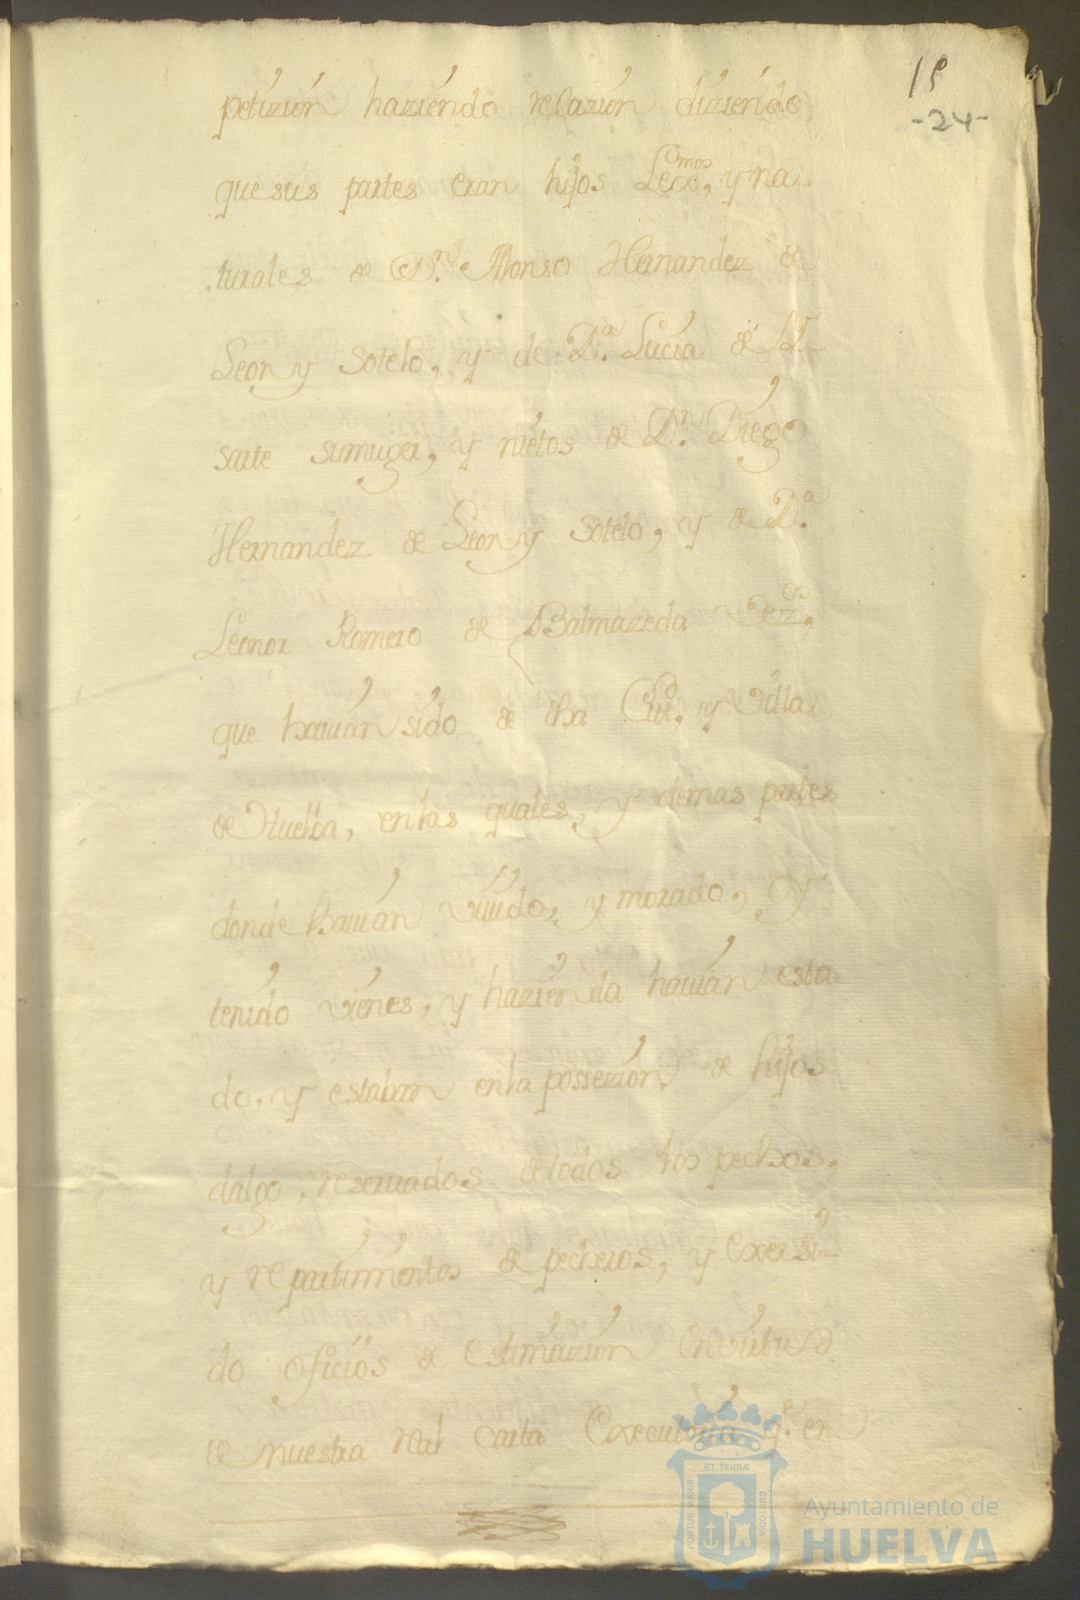 15
-24-
petizión haziendo relazión diziendo
que sus partes eran hijos Lexmos, y na
turales de Dn. Alonso Hernandez de
Leon y Sotelo, y de Da. Lucia de
sarte su muger, y nietos de Dn. Diego
Hernandez de Leon y Sotelo, y de Da.
Leonor Romero de Balmazeda
que hauian sido de dha Ciud. y Villa
de Huelba, en las quales, y demas partes
donde hauian viuido, y morado, y
tenido vienes, y hazienda hauian esta
do, y estaban en la possezion de hijos
dalgo, rezeruados de todos los pechos,
y repartimientos de pecheros, y exersi-
do oficios de estimazion en virtud
de nuestra real carta Executoria qe. en
PORTUS MARIS ET TERRÆ CUSTODIA
Ayuntamiento de
HUELVA